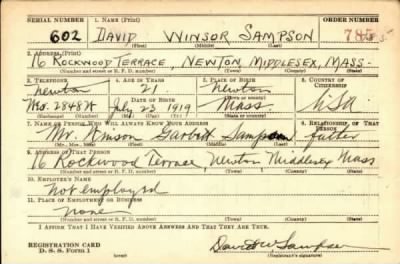 SERIAL NUMBER 1. NAME (Print) ORDER NUMBER
602 DAVID WINSOR SAMPSON 785
(First) (Middle) (Last)
2. ADDRESS (Print)
76 ROCKWOOD TERRACE, NEWTON, MIDDLESEX, MASS.
(Number and street or R. F. D. number) (Town) (County) (State)
3. TELEPHONE 4. AGE IN YEARS 5. PLACE OF BIRTH 6. COUNTRY OF CITIZENSHIP
Newton 21 Newton
DATE OF BIRTH (Town or county)
July 23 1919 Mass. USA
(Exchange) (Number) (Mo.) (Day) (Yr.) (State or country)
7. NAME OF PERSON WHO WILL ALWAYS KNOW YOUR ADDRESS 8. RELATIONSHIP OF THAT PERSON
Mr. Winsor Sampson father
(Mr., Mrs., Miss) (First) (Middle) (Last)
9. ADDRESS OF THAT PERSON
76 Rockwood Terrace, Newton Middlesex Mass
(Number and street or R. F. D. number) (Town) (County) (State)
10. EMPLOYER'S NAME
Not employed
11. PLACE OF EMPLOYMENT OR BUSINESS
None
(Number and street or R. F. D. number) (Town) (County) (State)
I AFFIRM THAT I HAVE VERIFIED ABOVE ANSWERS AND THAT THEY ARE TRUE.
REGISTRATION CARD
D. S. S. Form 1 David W. Sampson
(Registrant's signature)